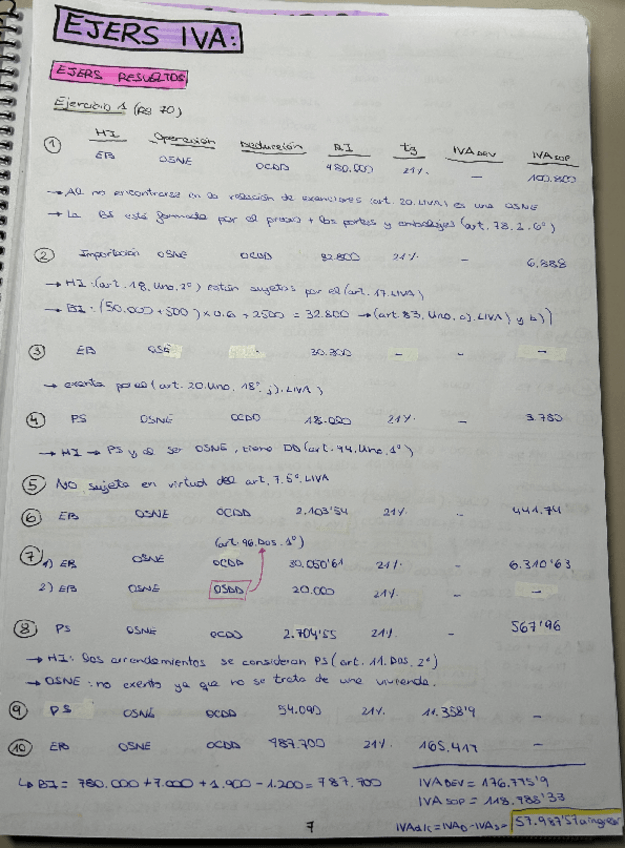 EJERS IVA:
EJERS RESUELTOS
Ejercicio 1 (Pg 70)
HI Operación Deducción BI tg IVA DEV IVA SOP
① EB OSNE OCDD 480.000 21% – 100.800
→ Al no encontrarse en la relación de exenciones (art. 20. LIVA) es una OSNE
→ La BI está formada por el precio + los portes y embalajes (art. 78. 2. 6º)
② Importación OSNE OCDD 32.800 21% – 6.888
→ HI: (art. 18. Uno. 2º) están sujetos por el (art. 17. LIVA)
→ BI: (50.000 + 500) x 0.6 + 2500 = 32.800 → (art. 83. Uno. a). LIVA) y b))
③ EB OSE – 30.300 – – –
→ exenta por el (art. 20. Uno. 18º. j). LIVA)
④ PS OSNE OCDD 18.000 21% – 3.780
→ HI → PS y al ser OSNE, tiene DD (art. 94. Uno. 1º)
⑤ NO sujeta en virtud del art. 7. 5º. LIVA
⑥ EB OSNE OCDD 2.103'54 21% – 441.74
(art. 96. Dos. 1º)
⑦ 1) EB OSNE OCDD 30.050'61 21% – 6.310'63
2) EB OSNE OSDD 20.000 21% – –
⑧ PS OSNE OCDD 2.704'55 21% – 567'96
→ HI: Los arrendamientos se consideran PS (art. 11. Dos. 2º)
→ OSNE: no exento ya que no se trata de una vivienda.
⑨ PS OSNE OCDD 54.090 21% 11.358'9 –
⑩ EB OSNE OCDD 787.700 21% 165.417 –
↳ BI = 780.000 + 7.000 + 1.900 – 1.200 = 787.700
IVA DEV = 176.775'9
IVA SOP = 118.788'33
IVA d/c = IVA D – IVA S = 57.987'57 a ingresar
7